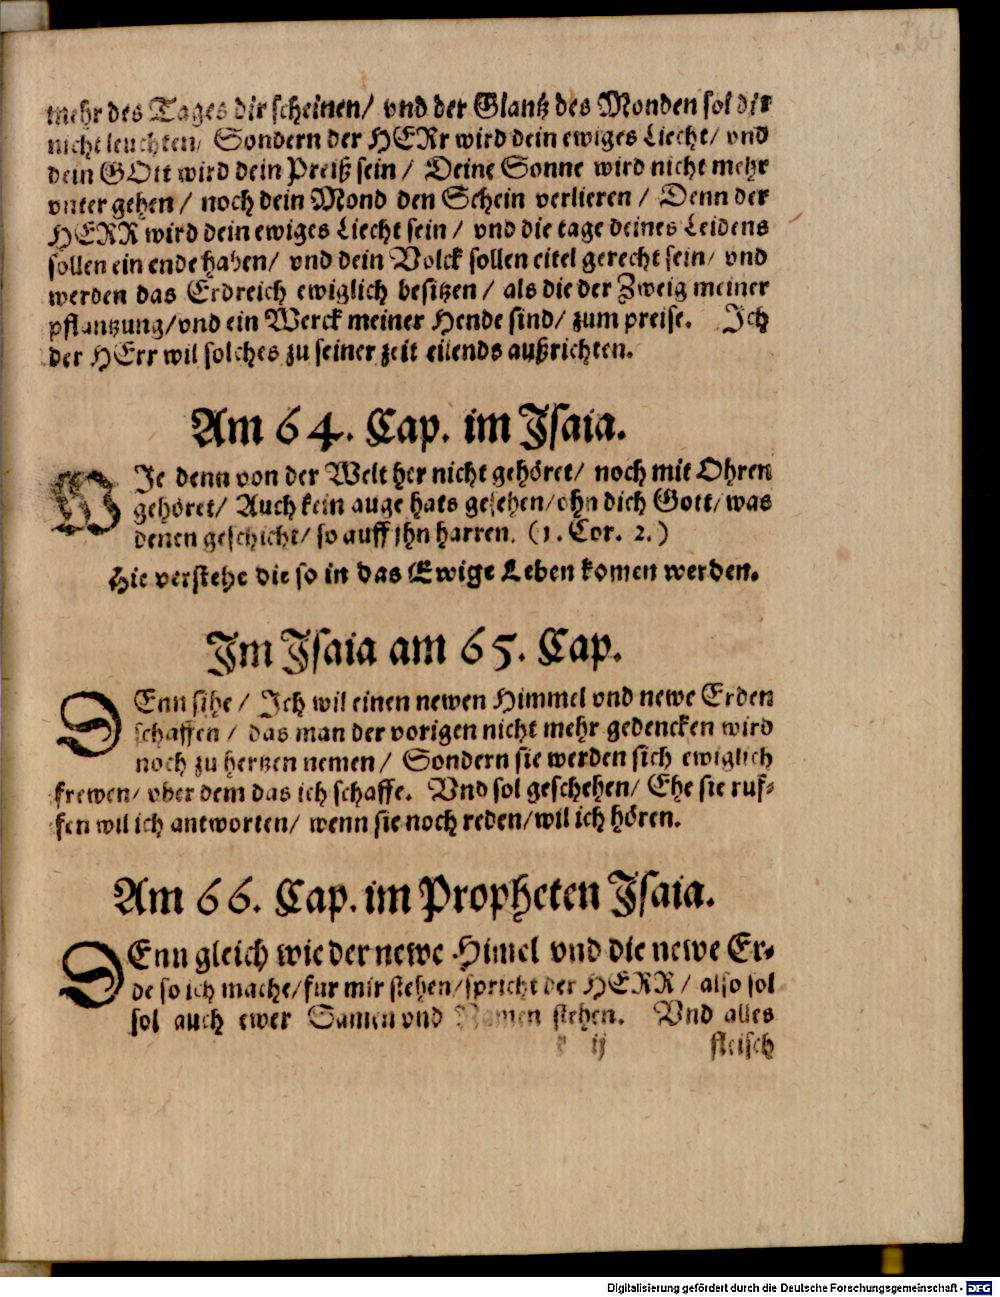 mehr des Tages dir scheinen/ vnd der Glantz des Monden sol dir
nicht leuchten/ Sondern der HERr wird dein ewiges Liecht/ vnd
dein GOtt wird dein Preiß sein/ Deine Sonne wird nicht mehr
vnter gehen/ noch dein Mond den Schein verlieren/ Denn der
HERR wird dein ewiges Liecht sein/ vnd die tage deines Leidens
sollen ein ende haben/ vnd dein Volck sollen eitel gerecht sein/ vnd
werden das Erdreich ewiglich besitzen/ als die der Zweig meiner
pflantzung/ vnd ein Werck meiner Hende sind/ zum preise. Ich
der HErr wil solches zu seiner zeit eilends außrichten.
Am 64. Cap. im Isaia.
WIe denn von der Welt her nicht gehöret/ noch mit Ohren
gehöret/ Auch kein auge hats gesehen/ ohn dich Gott/ was
denen geschicht/ so auff jhn harren. (1. Cor. 2.)
Hie verstehe die so in das Ewige Leben komen werden.
Im Isaia am 65. Cap.
DEnn sihe/ Ich wil einen newen Himmel vnd newe Erden
schaffen/ das man der vorigen nicht mehr gedencken wird
noch zu hertzen nemen/ Sondern sie werden sich ewiglich
frewen/ vber dem das ich schaffe. Vnd sol geschehen/ Ehe sie ruf-
fen wil ich antworten/ wenn sie noch reden/ wil ich hören.
Am 66. Cap. im Propheten Isaia.
DEnn gleich wie der newe Himel vnd die newe Er-
de so ich mache/ fur mir stehen/ spricht der HERR/ also sol
sol auch ewer Samen vnd Namen stehen. Vnd alles
ij fleisch
Digitalisierung gefördert durch die Deutsche Forschungsgemeinschaft - DFG